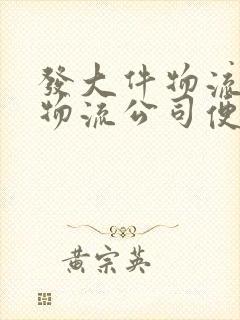 發大件物流
物流公司便
黄宗英